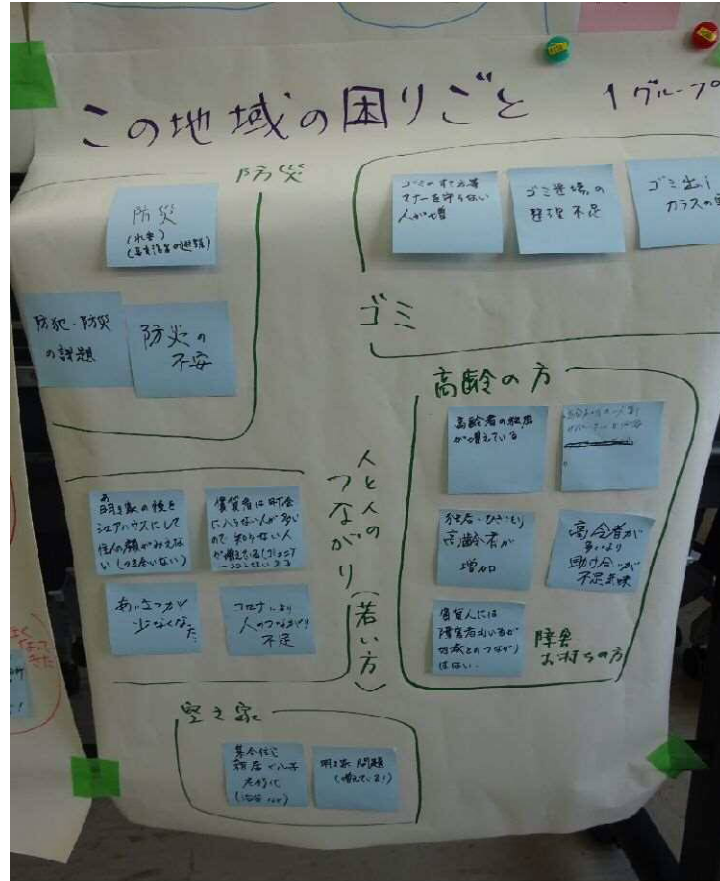 この地域の困りごと 1グループ
防災
防災
(水害)
防犯・防災
の課題
防災の
不安
ゴミ
ゴミのすて方等
マナーを守らない
人が増
ゴミ置場の
管理不足
ゴミ出し
カラスの
高齢の方
高齢者の
が増えている
独居・ひきこもり
高齢者が
増加
高令者が
多いより
助け合いが
不足気味
賃貸人には
障害者もいるが
地域とのつながり
はない
障害
お持ちの方
人と人の
つながり(若い方)
明き家の後を
シェアハウスにして
住人の顔がみえない
(つき合いない)
賃貸者は町会
に入らない人が多い
ので知らない人
が増えている
あいさつが
少なくなった
コロナにより
人のつながり
不足
空き家
集合住宅
老朽化
明き家問題
(増えている!)